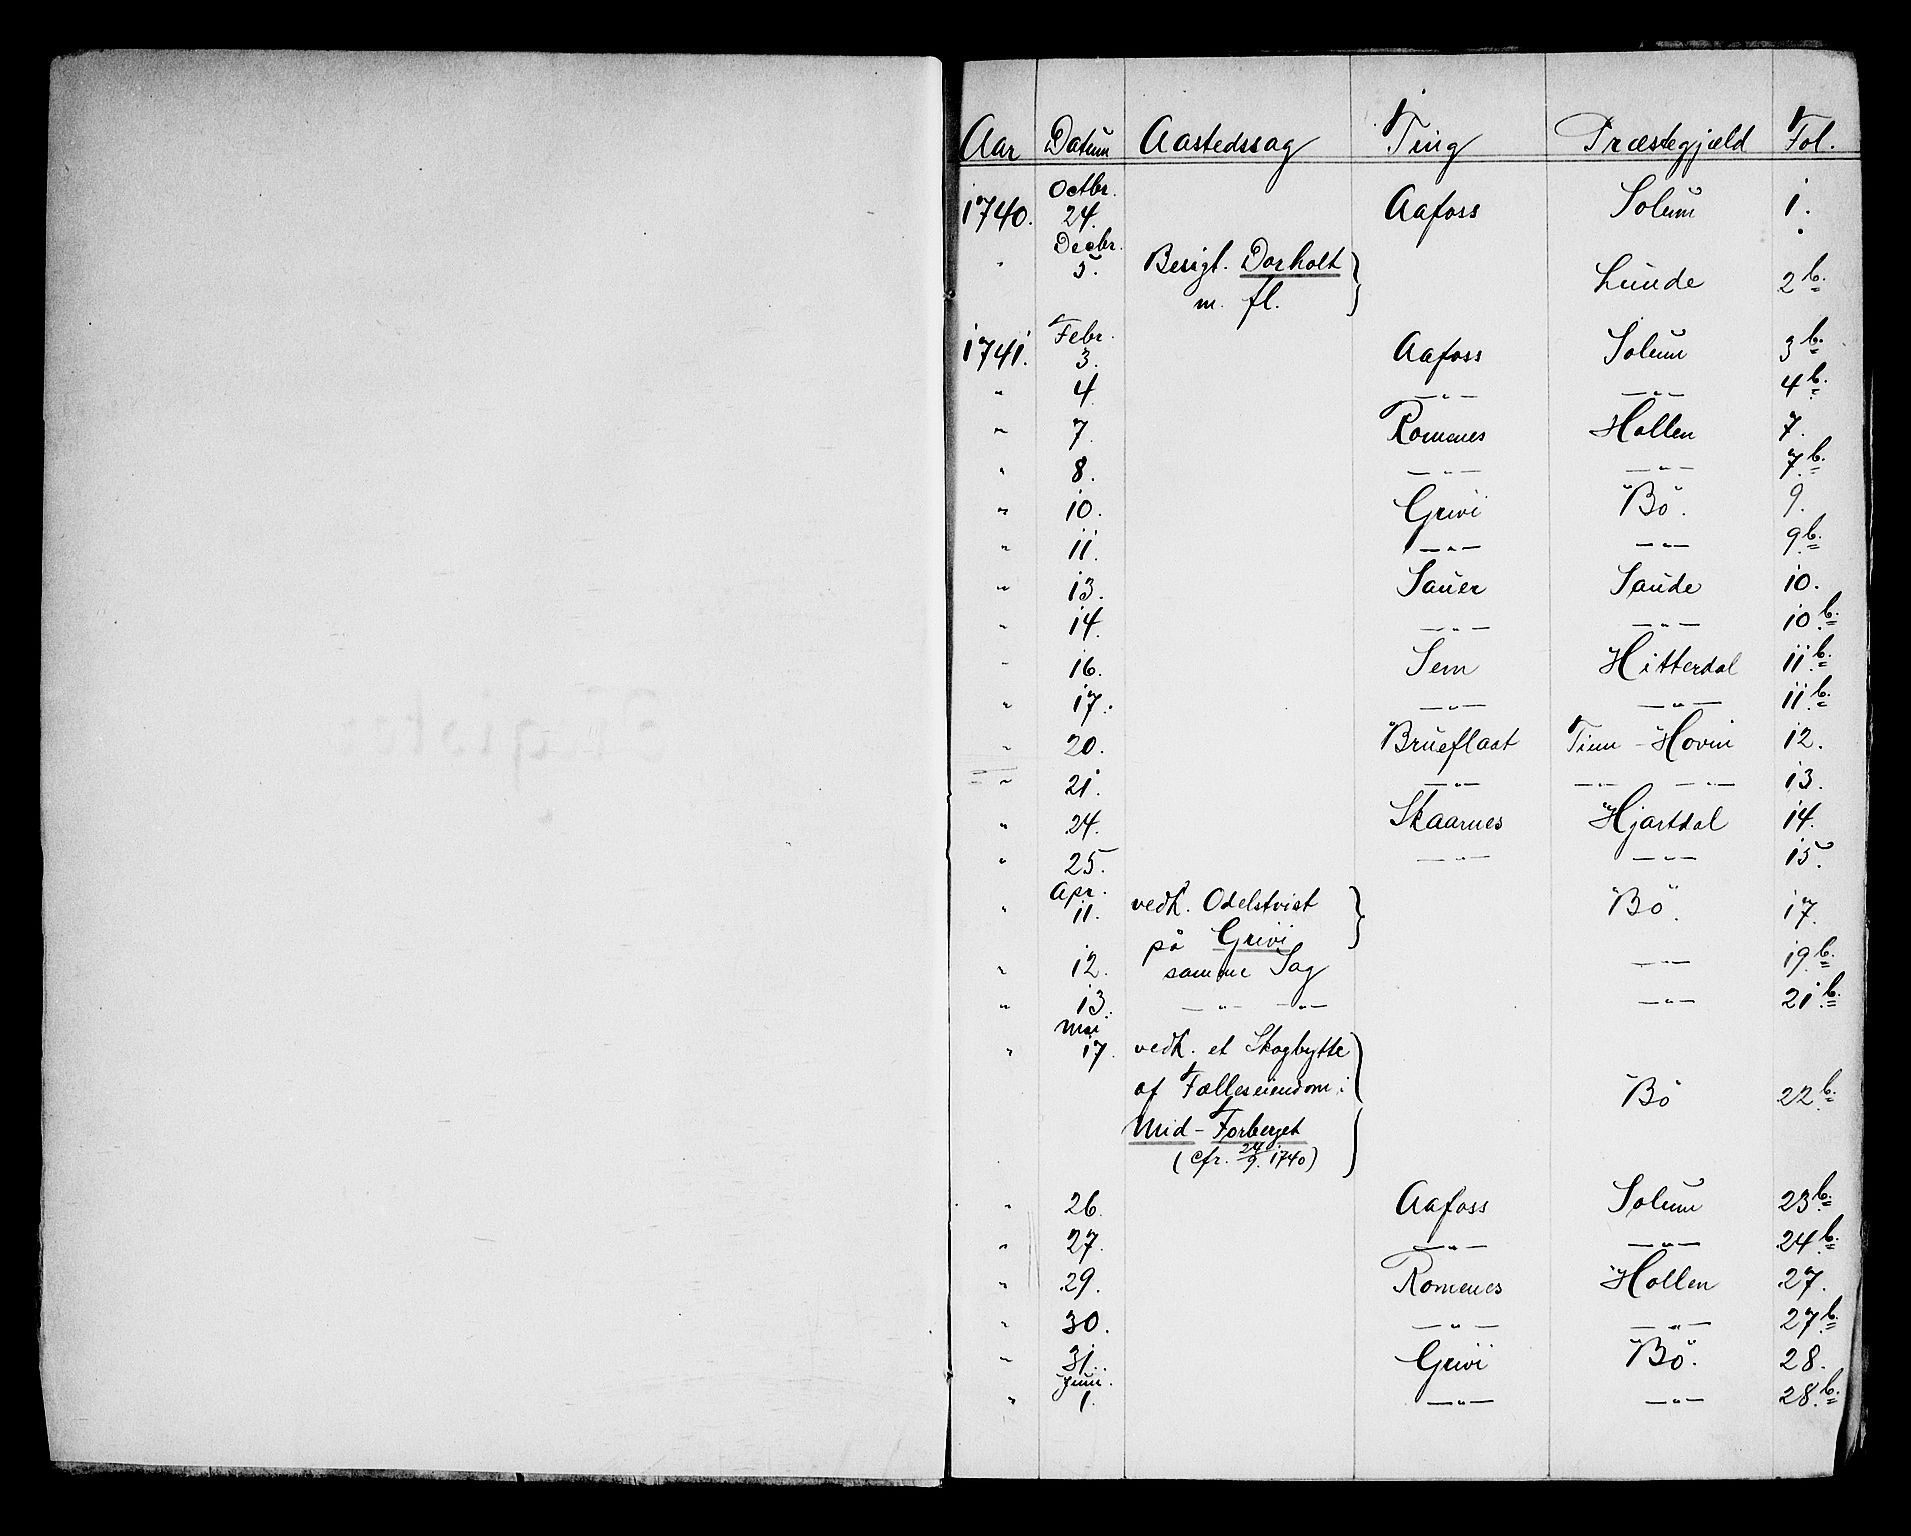 Aar Datum Aastedssag Ting Præstegjæld Fol.
1740. Octbr. 24. Aafoss Solum 1.
" Decbr. 5. Besigt. Dorholt Lunde 2 b.
m. fl.
1741. Febr. 3. Aafoss Solum 3 b.
" 4 —"— —"— 4 b.
" 7. Romenes Hollen 7.
" 8. —"— —"— 7 b.
" 10. Grivi Bö. 9.
" 11. —"— —"— 9 b.
" 13. Sauer Saude 10.
" 14. —"— —"— 10 b.
" 16. Sem Hitterdal 11 b.
" 17. —"— —"— 11 b.
" 20. Brueflaat Tinn - Hovin 12.
" 21. —"— —"— —"— 13.
" 24. Skaarnes Hjartdal 14.
" 25. —"— —"— 15.
" Apr. 11. vedk. Odelstvist Bö. 17.
på Grivi
" 12. samme Sag —"— 19 b.
" 13. —"— —"— —"— 21 b.
" Mai 17. vedk. et Skogbytte
af Fælleseiendom i Bö 22 b.
Mid - Forberget
(cfr. 24/9. 1740)
" 26. Aafoss Solum 23 b.
" 27. —"— —"— 24 b.
" 29. Romenes Hollen 27.
" 30. —"— —"— 27 b.
" 31. Grivi Bö. 28.
" Juni. 1. —"— —"— 28 b.